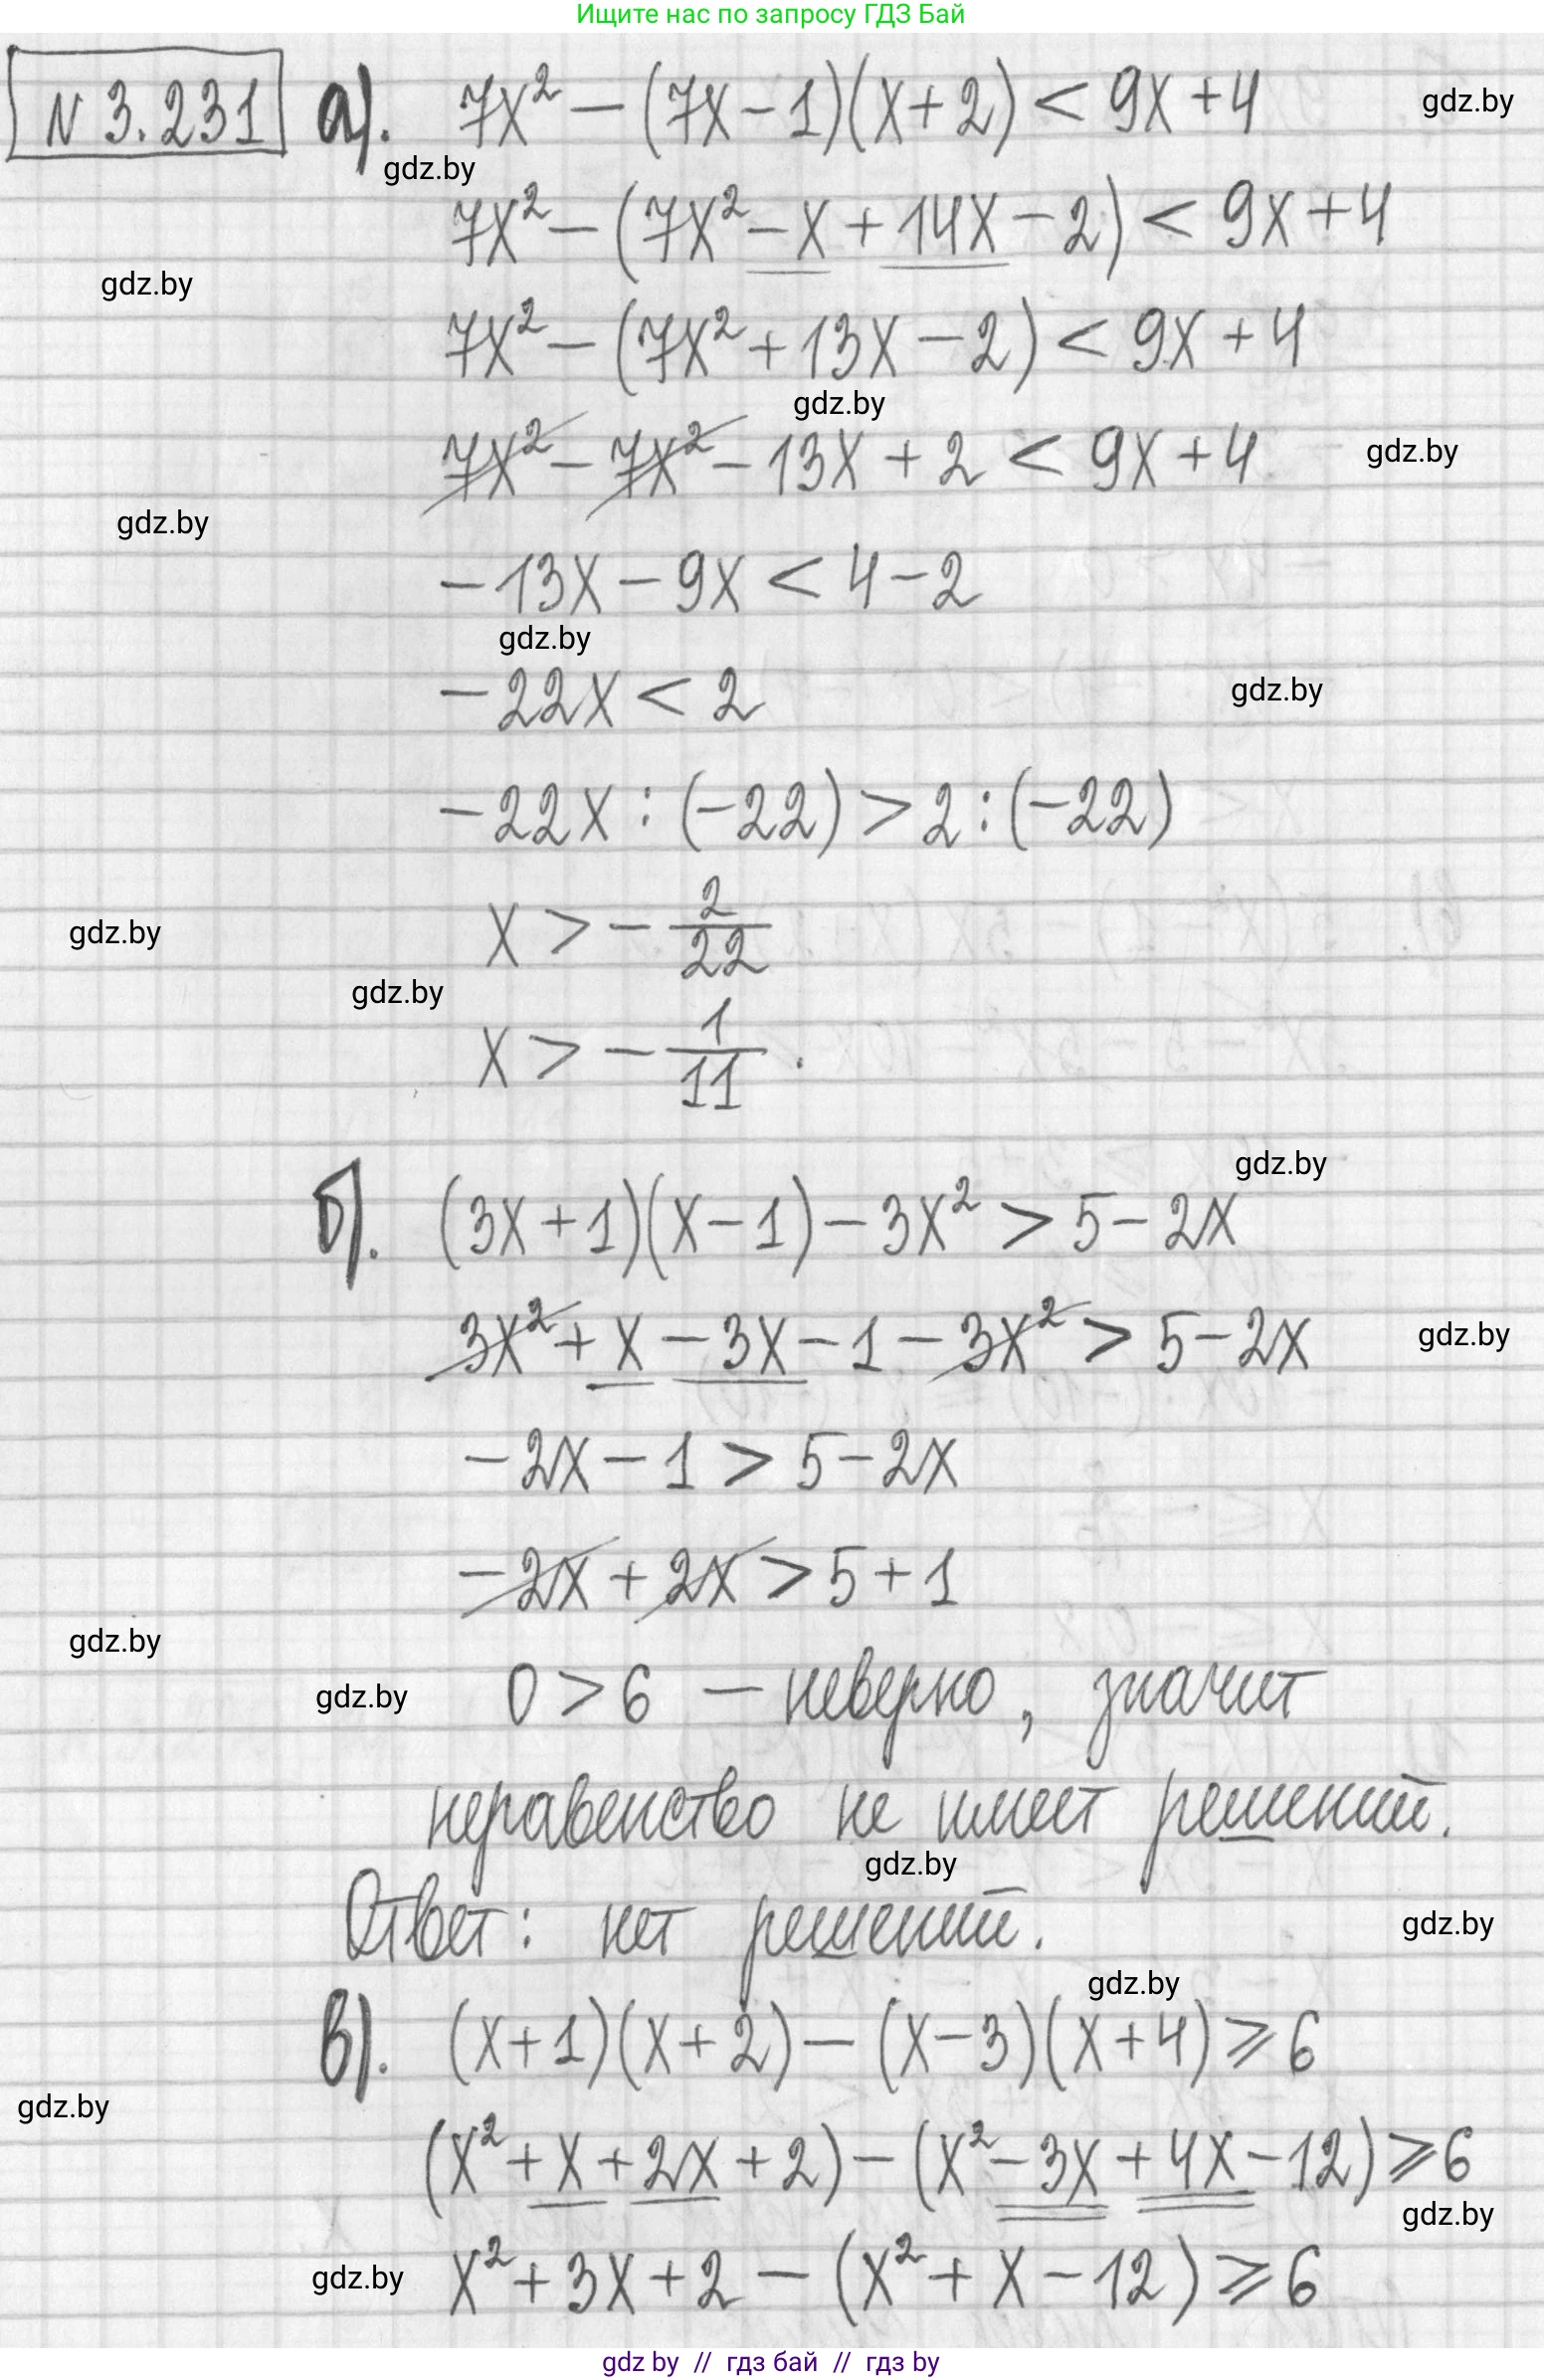 Ищите нас по запросу ГДЗ Бай
N 3.231 а). 7x² − (7x − 1)(x + 2) < 9x + 4
gdz.by
gdz.by
7x² − (7x² − x + 14x − 2) < 9x + 4
gdz.by
7x² − (7x² + 13x − 2) < 9x + 4
gdz.by
7x² − 7x² − 13x + 2 < 9x + 4
gdz.by
gdz.by
−13x − 9x < 4 − 2
gdz.by
−22x < 2
gdz.by
−22x : (−22) > 2 : (−22)
x > − 2/22
gdz.by
gdz.by
x > − 1/11 .
gdz.by
б). (3x + 1)(x − 1) − 3x² > 5 − 2x
3x² + x − 3x − 1 − 3x² > 5 − 2x
gdz.by
−2x − 1 > 5 − 2x
−2x + 2x > 5 + 1
gdz.by
0 > 6 — неверно, значит
gdz.by
неравенство не имеет решений.
gdz.by
Ответ: нет решений.
gdz.by
gdz.by
в). (x + 1)(x + 2) − (x − 3)(x + 4) ⩾ 6
gdz.by
(x² + x + 2x + 2) − (x² − 3x + 4x − 12) ⩾ 6
gdz.by
x² + 3x + 2 − (x² + x − 12) ⩾ 6
gdz.by
gdz by // гдз бай // гдз by